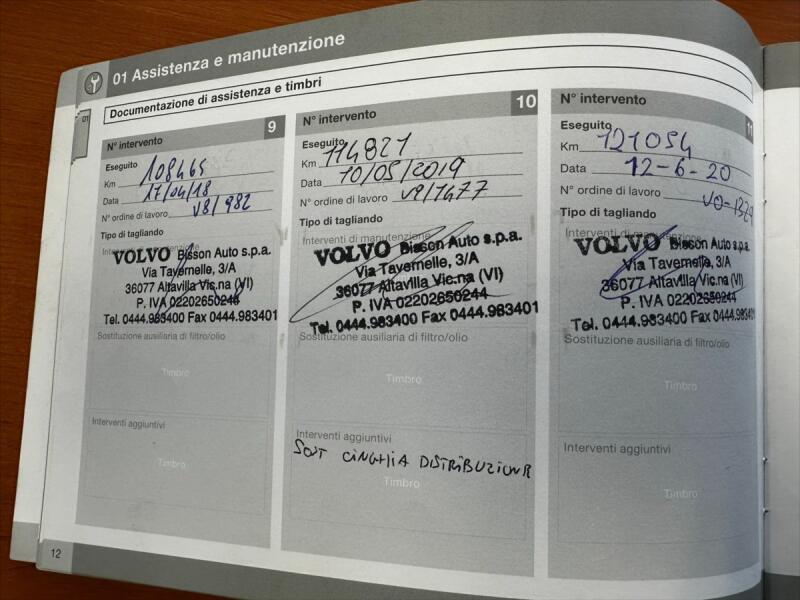 01 Assistenza e manutenzione
01
Documentazione di assistenza e timbri
N° intervento 9
Eseguito
Km 108465
Data 17/04/18
N° ordine di lavoro V8/982
Tipo di tagliando
Interventi di manutenzione
VOLVO Bisson Auto s.p.a.
Via Tavernelle, 3/A
36077 Altavilla Vic.na (VI)
P. IVA 02202650244
Tel. 0444.983400 Fax 0444.983401
Sostituzione ausiliaria di filtro/olio
Timbro
Interventi aggiuntivi
Timbro
N° intervento 10
Eseguito
Km 114821
Data 10/05/2019
N° ordine di lavoro V9/1477
Tipo di tagliando
Interventi di manutenzione
VOLVO Bisson Auto s.p.a.
Via Tavernelle, 3/A
36077 Altavilla Vic.na (VI)
P. IVA 02202650244
Tel. 0444.983400 Fax 0444.983401
Sostituzione ausiliaria di filtro/olio
Timbro
Interventi aggiuntivi
SOST CINGHIA DISTRIBUZIONE
Timbro
N° intervento 11
Eseguito
Km 121054
Data 12-6-20
N° ordine di lavoro VO-1329
Tipo di tagliando
Interventi di manutenzione
VOLVO Bisson Auto s.p.a.
Via Tavernelle, 3/A
36077 Altavilla Vic.na (VI)
P. IVA 02202650244
Tel. 0444.983400 Fax 0444.983401
Sostituzione ausiliaria di filtro/olio
Timbro
Interventi aggiuntivi
Timbro
12